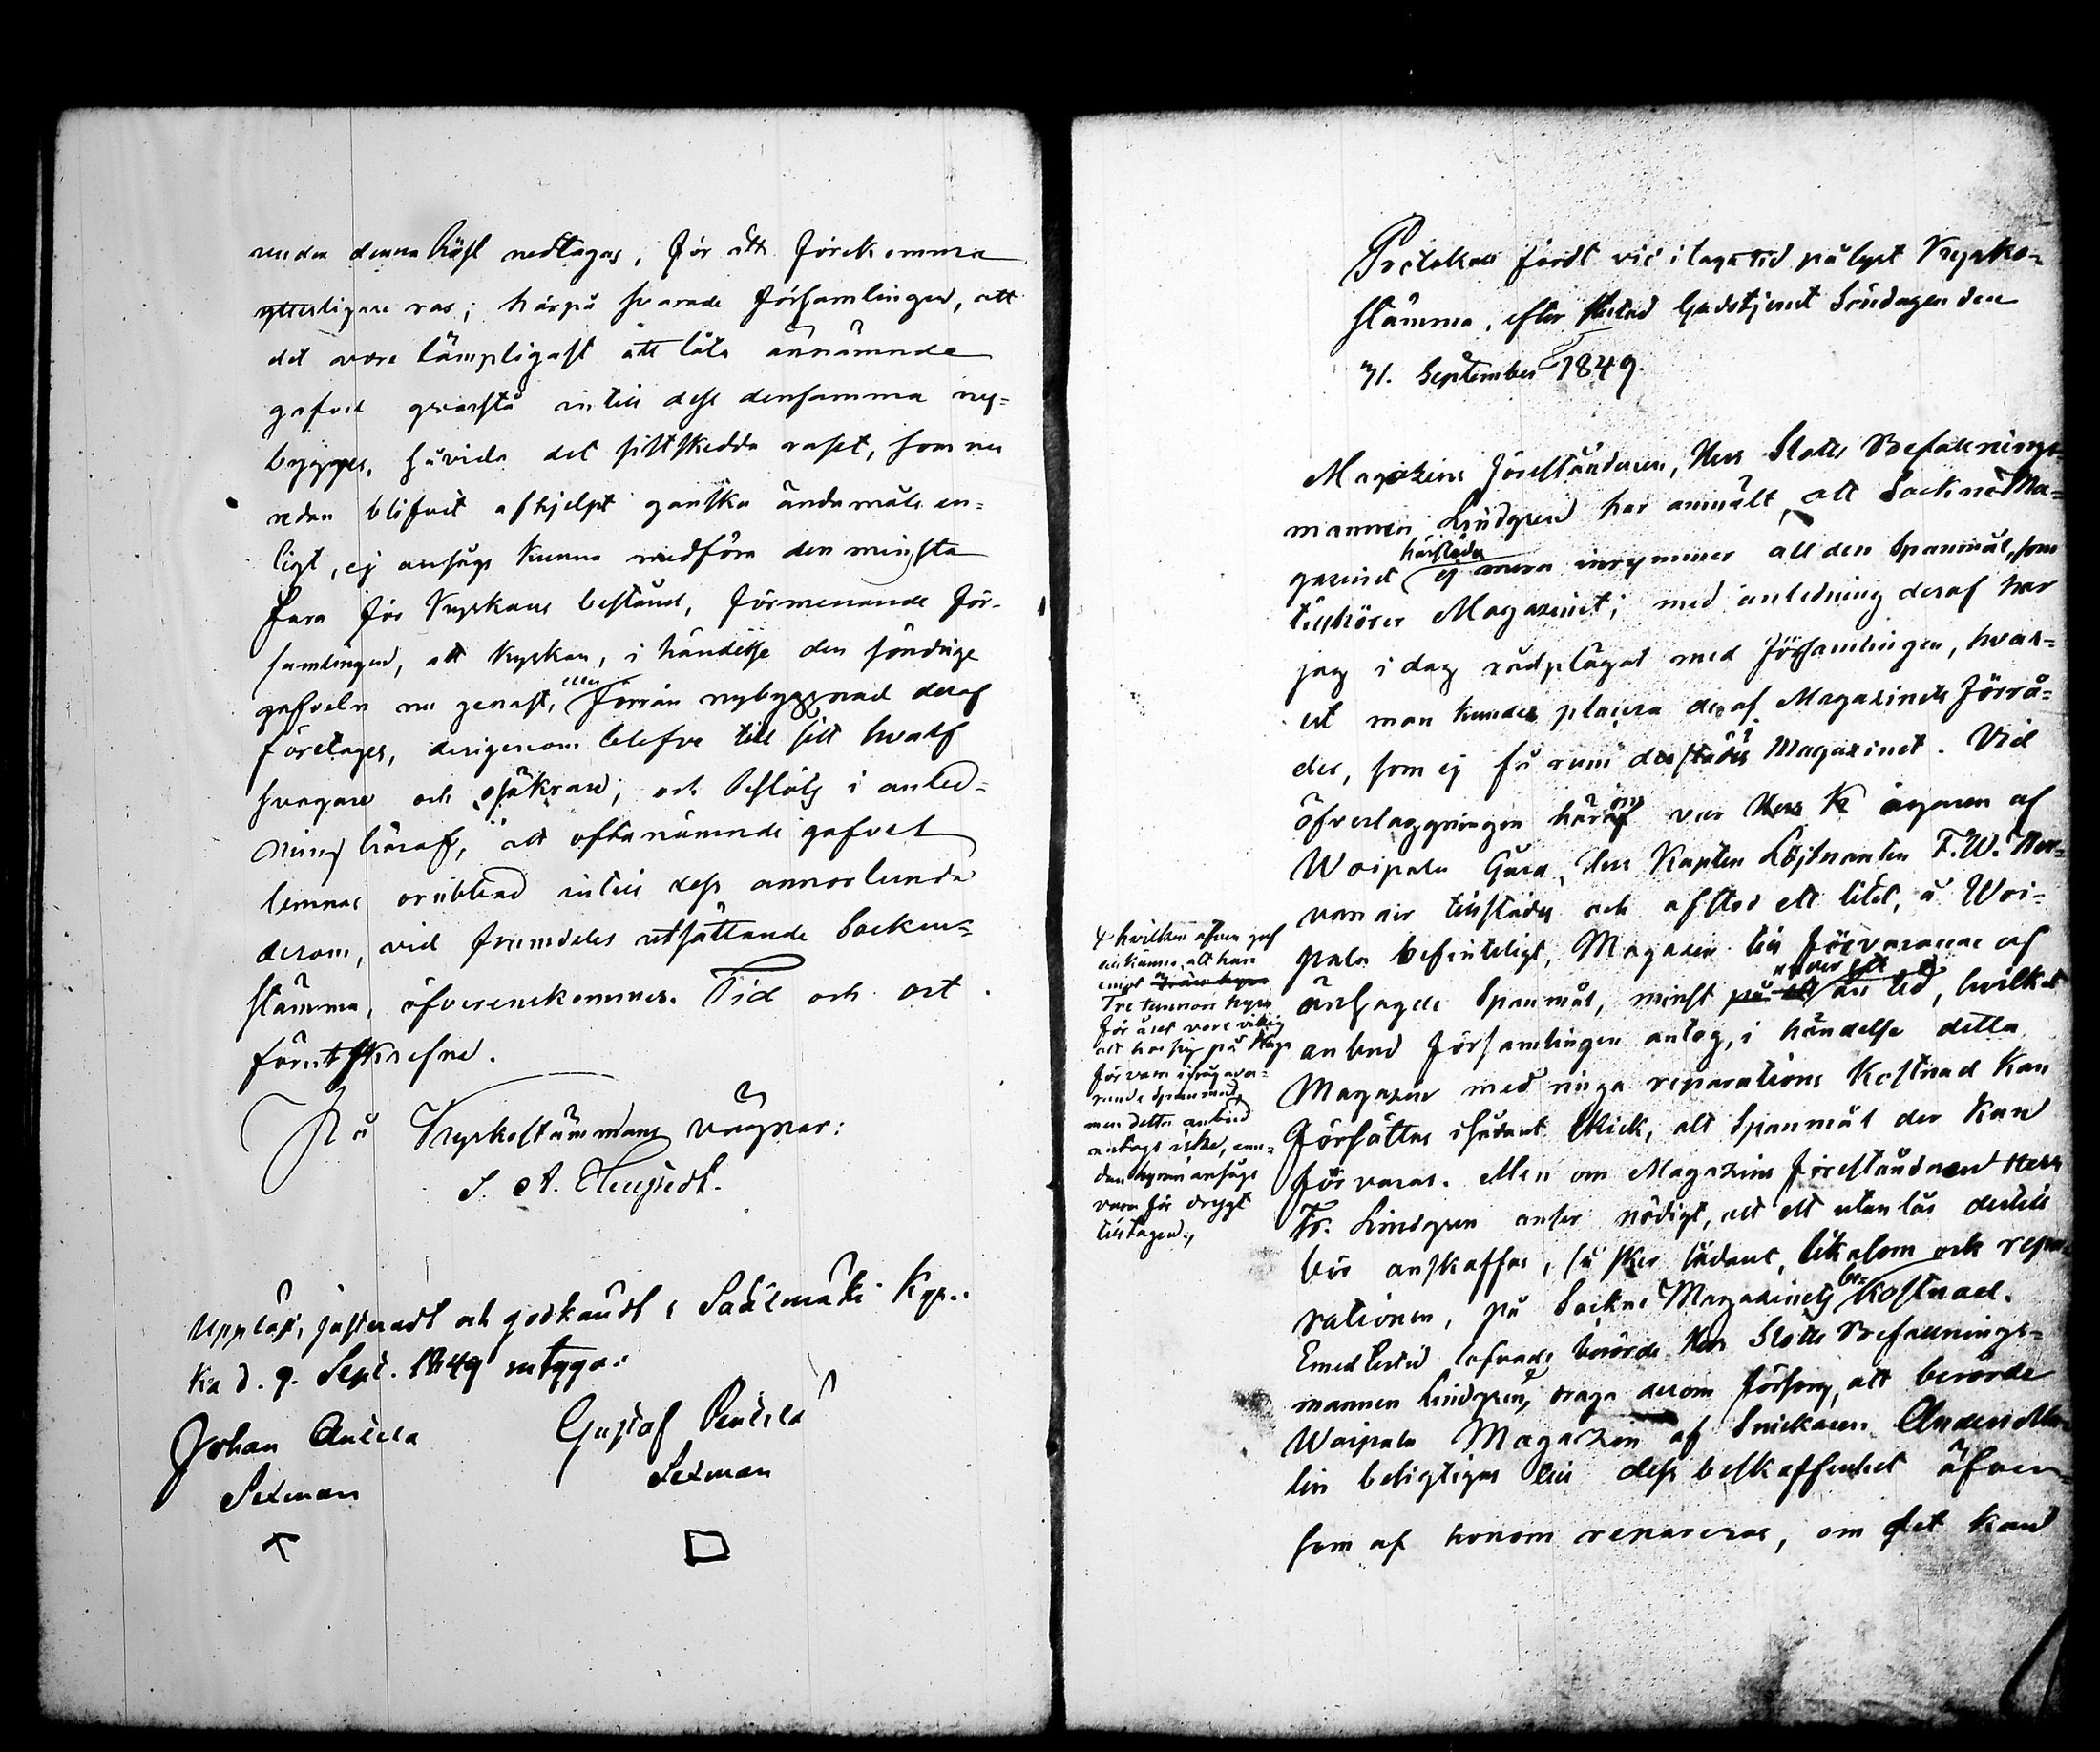 redan denna höst nedtagas, för att förekomma
ytterligare ras; härpå svarade församlingen, att
det vore lämpligast att låta ännämnde
gafvel qvarstå intill dess densamma ny-
bygges, såvida det sistskedda raset, som nu
redan blifvit afhjelpt ganska ändamåls en-
ligt, ej ansågs kunna medföra den minsta
fara för Kyrkans bestånd, förmenande för-
samlingen, att kyrkan, i händelse den söndrige
gafveln nu genast, eller förrän nybyggnad deraf
företages, derigenom blefve till sitt hvalf
svagare och osäkrare; och beslöts i anled-
ning häraf, att oftanämnde gafvel
lemnas orubbad intill dess annorlunda
derom, vid framdeles utsättande Socken-
stämma, öfverenskommes. Tid och ort
förutskrefne.
På Kyrkostämmans vägnar:
Uppläst, justeradt och godkändt i Sääxmäki Kyr-
ka d. 9. Sept. 1849 betyga:
Johan Anttila
Sexman
Gustaf Penttilä
Sexman
Protokoll fördt vid i laga tid pålyst Kyrko-
stämma, efter slutad Gudstjenst Söndagen den
September 1849.
Magazins Föreståndaren, Herr Slotts Befallnings-
mannen Lindgren har anmält, att Sockne Ma-
gazinet härstädes ej mera inrymmer all den Spanmål, som
tillhörer Magazinet; med anledning deraf har
jag i dag rådplägat med församlingen, hvar-
est man kunde placera deraf Magazinets förrå-
der, som ej få rum i Magazinet. Vid
öfverläggningen härom var Herr ägaren af
Woipala Gård, Herr Kapten Löjtnanten F. W.
tillstädes och aflät ett litet, å Woi-
pala befinteligt, Magazin till förvarande af
änsagde Spanmål, minst på ett års tid, hvilket
anbud församlingen antog, i händelse detta
Magazin med ringa reparations kostnad kan
försättas i sådant skick, att Spanmål der kan
förvaras. Men om Magazins föreståndaren Herr
Lindgren anser nödigt, att ett utanlås dertill
bör anskaffas, så sker sådant, likasom och repa-
rationen, på Sockne Magazinets bekostnad.
Emedlertid lofvade berörde Herr Slotts Befallnings-
mannen Lindgren, draga derom försorg, att berörde
Woipala Magazin af Snickaren
besigtigas till dess beskaffenhet äfven-
som af honom repareras, om det kan
hvilken äfven gaf
tillkänna, att han
emot
Tre tunnors hyra
för året vore villig
att hos sig på Haga
förvara ifrågava-
rande Spanmål,
men detta anbud
antogs icke, eme-
dan hyran ansågs
vara för drygt
tilltagen.,